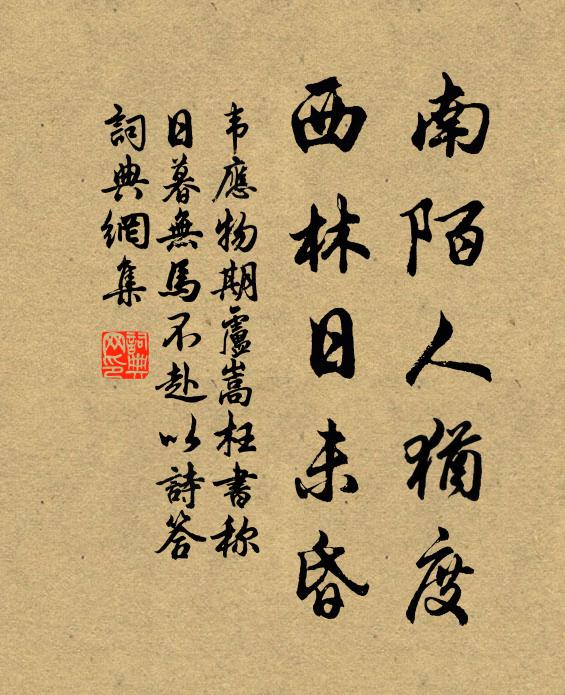 南陌人猶度
西林日未昏
韦應物期盧嵩枉書称
日暮無馬不赴以詩答
詞典網集
詞典网印